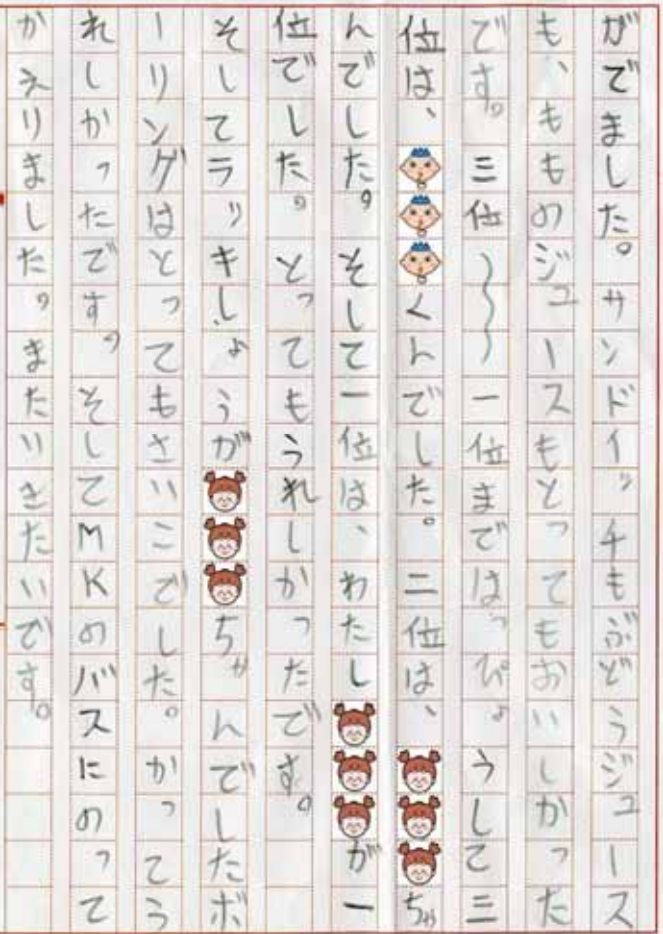 がでました。サンドイッチもぶどうジュース
も、もものジュースもとってもおいしかった
です。三位〜〜〜一位まではっぴょうして三
位は、くんでした。二位は、ちゃ
んでした。そして一位は、わたしが一
位でした。とってもうれしかったです。
そしてラッキーしょうがちゃんでしたボ
ーリングはとってもさいこでした。かってう
れしかったです。そしてMKのバスにのって
かえりました。またいきたいです。